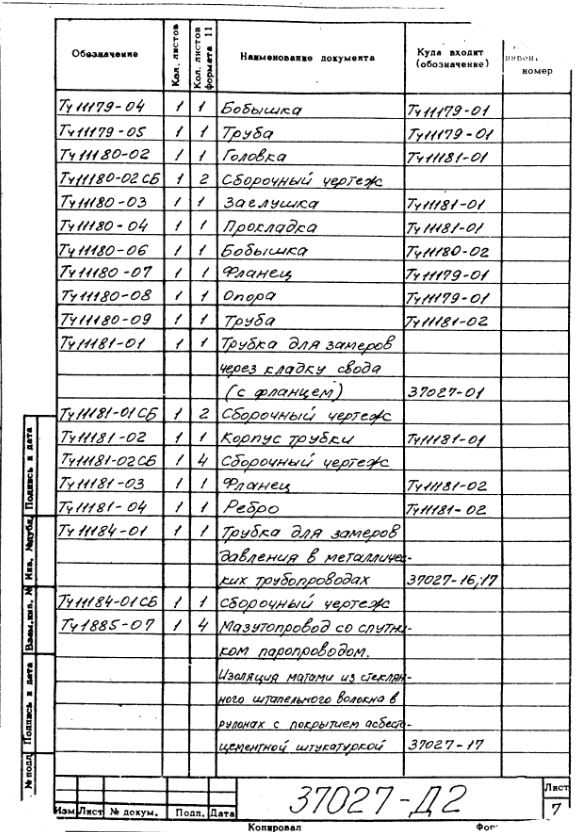 Обозначение Кол. листов Кол. листов формата 11 Наименование документа Куда входит (обозначение) номер
Ту11179-04 1 1 Бобышка Ту11179-01
Ту11179-05 1 1 Труба Ту11179-01
Ту11180-02 1 1 Головка Ту11181-01
Ту11180-02СБ 1 2 Сборочный чертеж
Ту11180-03 1 1 Заглушка Ту11181-01
Ту11180-04 1 1 Прокладка Ту11181-01
Ту11180-06 1 1 Бобышка Ту11180-02
Ту11180-07 1 1 Фланец Ту11179-01
Ту11180-08 1 1 Опора Ту11179-01
Ту11180-09 1 1 Труба Ту11181-02
Ту11181-01 1 1 Трубка для замеров
через кладку свода
(с фланцем) 37027-01
Ту11181-01СБ 1 2 Сборочный чертеж
Ту11181-02 1 1 Корпус трубки Ту11181-01
Ту11181-02СБ 1 4 Сборочный чертеж
Ту11181-03 1 1 Фланец Ту11181-02
Ту11181-04 1 1 Ребро Ту11181-02
Ту11184-01 1 1 Трубка для замеров
давления в металличес-
ких трубопроводах 37027-16,17
Ту11184-01СБ 1 1 Сборочный чертеж
Ту1885-07 1 4 Мазутопровод со спутни-
ком паропроводом.
Изоляция матами из стеклян-
ного штапельного волокна в
рулонах с покрытием асбесто-
цементной штукатуркой 37027-17
№ подл Подпись и дата Взам.инв. № Инв. №дубл. Подпись и дата
Изм Лист № докум. Подп. Дата
37027-Д2
Лист
7
Копировал